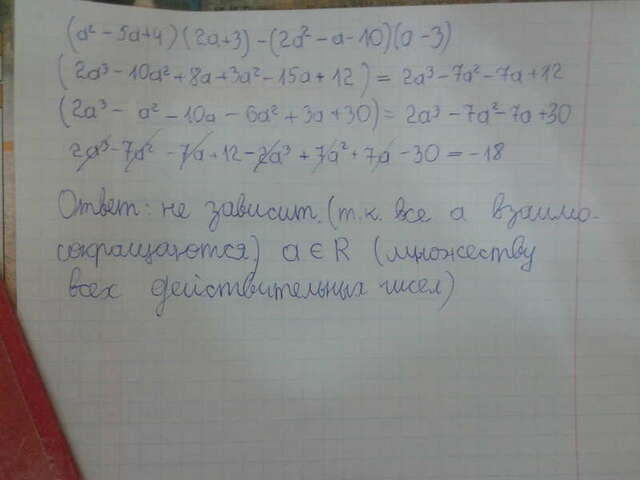 (a² - 5a + 4)(2a + 3) - (2a² - a - 10)(a - 3)
(2a³ - 10a² + 8a + 3a² - 15a + 12) = 2a³ - 7a² - 7a + 12
(2a³ - a² - 10a - 6a² + 3a + 30) = 2a³ - 7a² - 7a + 30
2a³ - 7a² - 7a + 12 - 2a³ + 7a² + 7a - 30 = -18
Ответ: не зависит. (т.к. все a взаимо-
сокращаются) a ∈ R (множеству
всех действительных чисел)